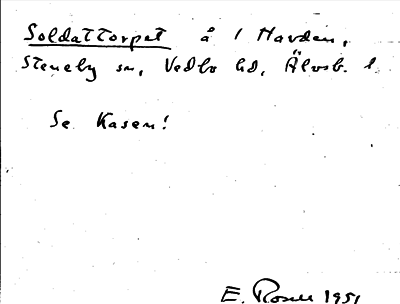 Soldattorpet å 1 Havden,
Steneby sn, Vedbo hd, Älvsb. l
Se Kasen!
E. Rosell 1951